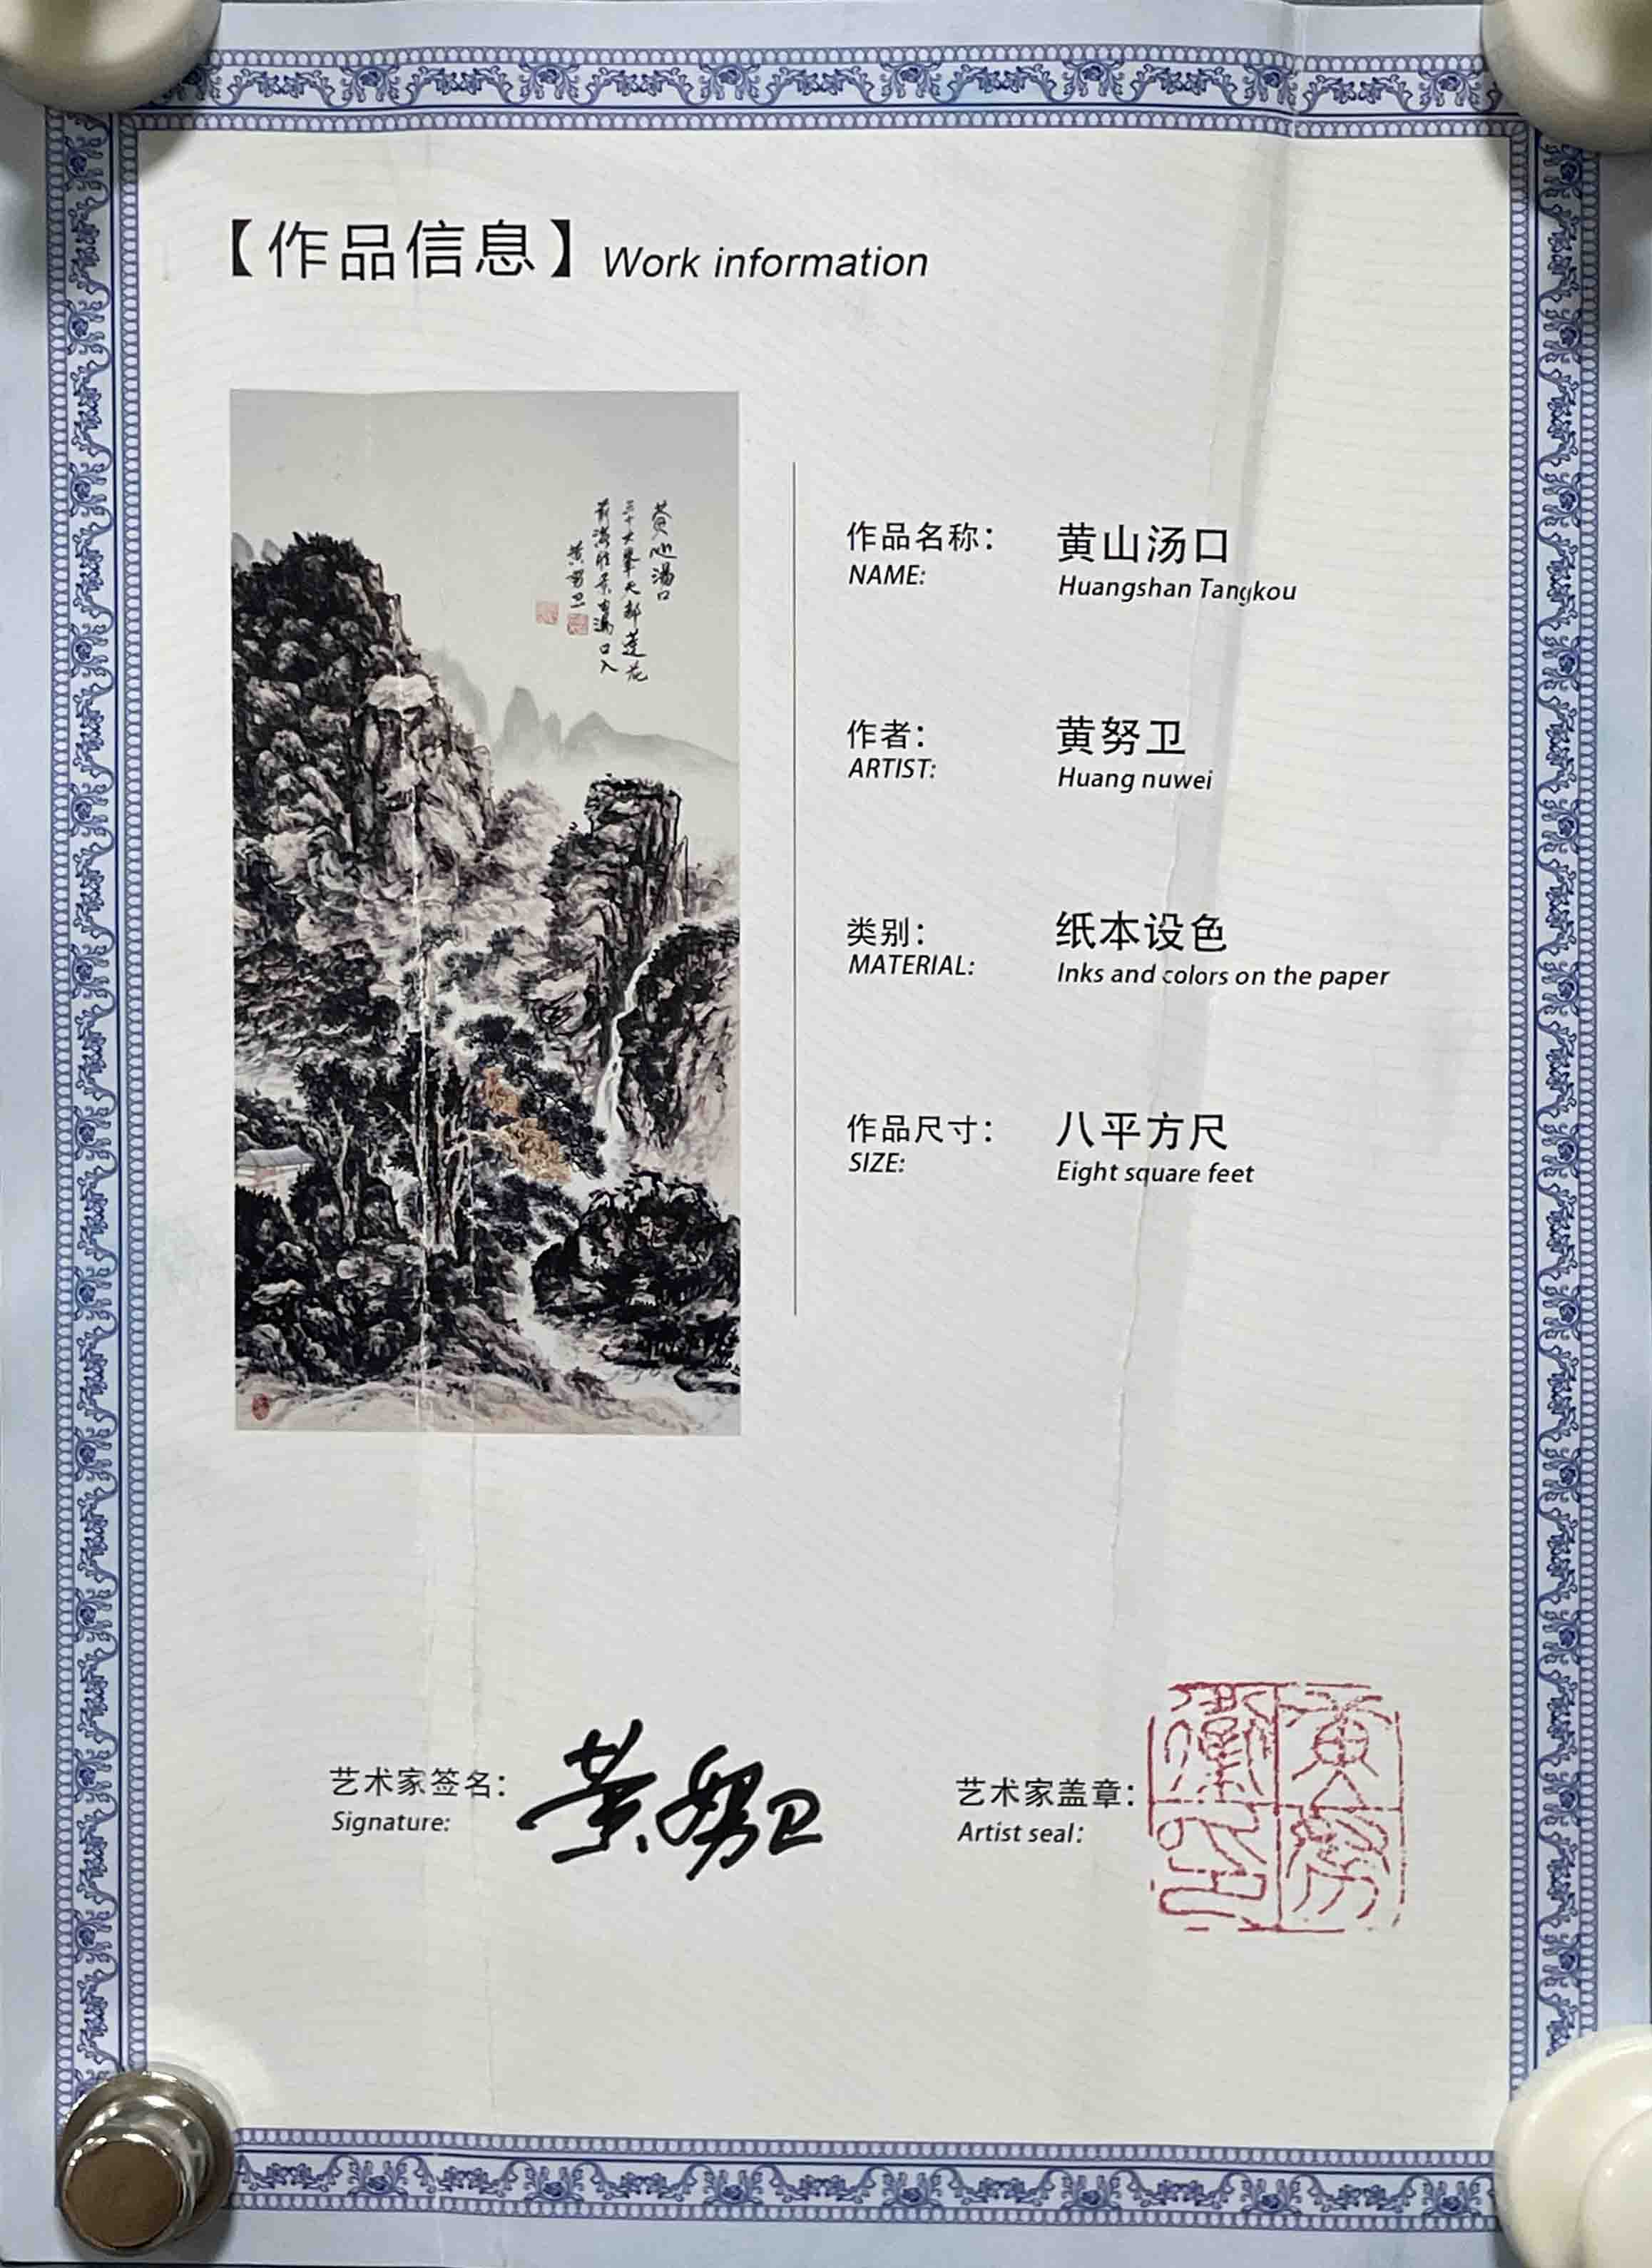 【作品信息】Work information
黄山湯口
三十六峯天都蓮花
前海胜景由湯口入
黄努卫
作品名称： 黄山汤口
NAME: Huangshan Tangkou
作者： 黄努卫
ARTIST: Huang nuwei
类别： 纸本设色
MATERIAL: Inks and colors on the paper
作品尺寸： 八平方尺
SIZE: Eight square feet
艺术家签名： 黄努卫
Signature:
艺术家盖章：
Artist seal:
黄努
衛印